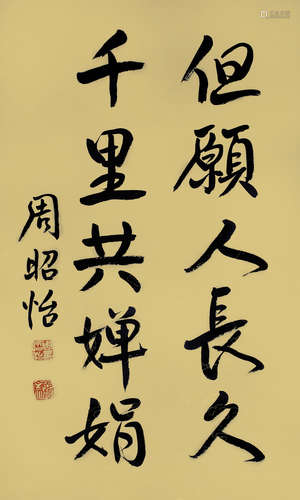 但願人長久
千里共婵娟
周昭怡